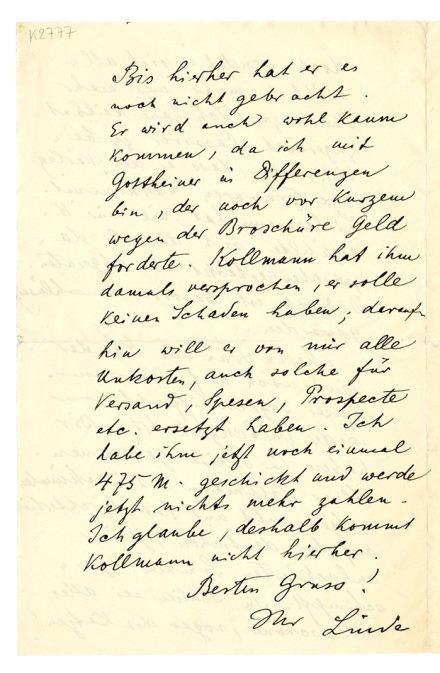 K2777
Bis hierher hat er es
noch nicht gebracht.
Er wird auch wohl kaum
kommen, da ich mit
Gottheiner in Differenzen
bin, der noch vor Kurzem
wegen der Broschüre Geld
forderte. Kollmann hat ihm
damals versprochen, er solle
keinen Schaden haben; darauf
hin will er von mir alle
Unkosten, auch solche für
Versand, Spesen, Prospecte
etc. ersetzt haben. Ich
habe ihm jetzt noch einmal
475 M. geschickt und werde
jetzt nichts mehr zahlen.
Ich glaube, deshalb kommt
Kollmann nicht hierher.
Besten Gruss!
Ihr Linde